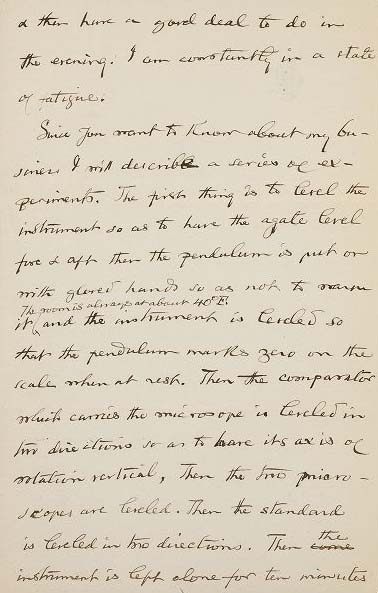 & then have a good deal to do in
the evening. I am constantly in a state
of fatigue.
Since you want to know about my bu-
siness I will describe a series of ex-
periments. The first thing is to level the
instrument so as to have the agate level
fore & aft then the pendulum is put on
with gloved hands so as not to warm
The room is always at about 40° F.
it, and the instrument is leveled so
that the pendulum marks zero on the
scale when at rest. Then the comparator
which carries the microscope is leveled in
two directions so as to have its axis of
rotation vertical, Then the two micro-
scopes are leveled. Then the standard
is leveled in two directions. Then the
instrument is left alone for ten minutes